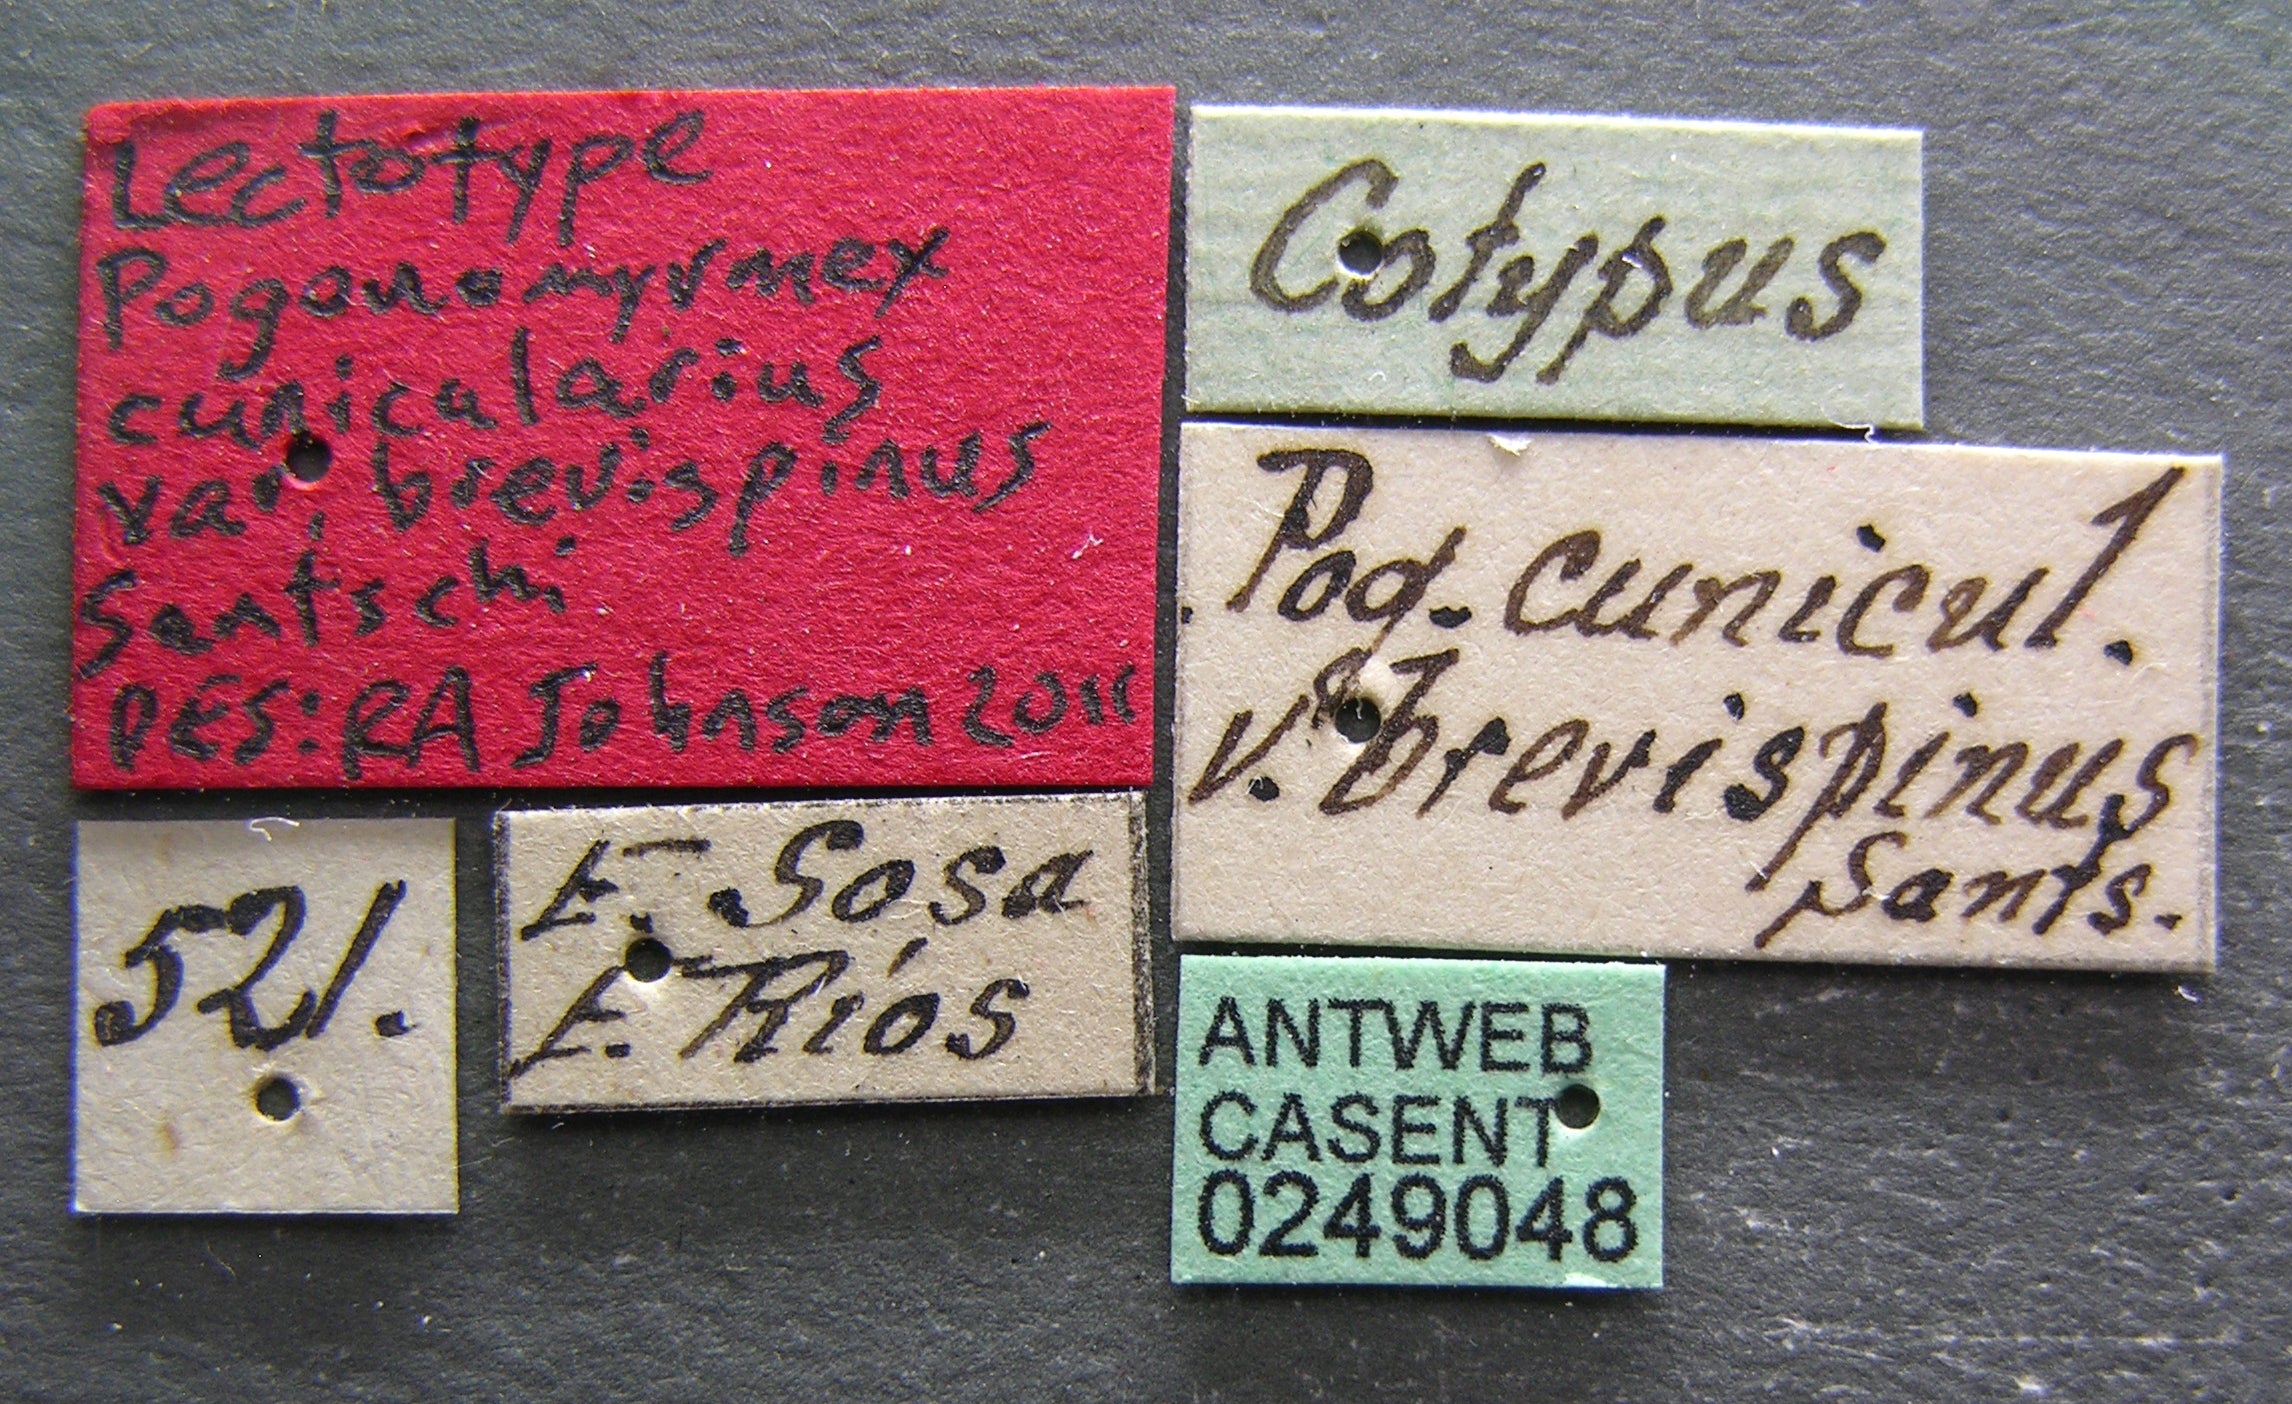 Lectotype
Pogonomyrmex
cunicalarius
var. brevispinus
Santschi
DES: RA Johnson 2011
Cotypus
Pog. cunicul.
v. ♀ brevispinus
Sants.
521.
E. Sosa
E. Ríos
ANTWEB
CASENT
0249048